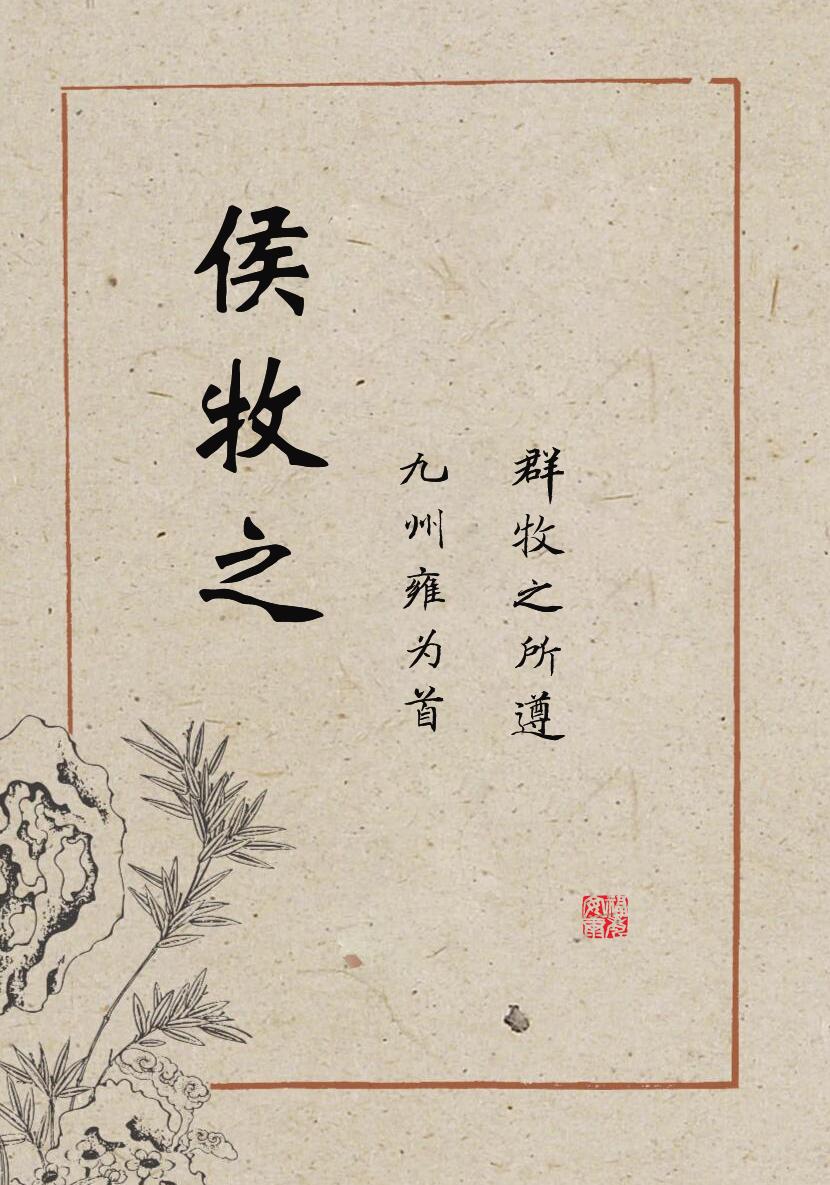 侯牧之
群牧之所遵
九州雍为首